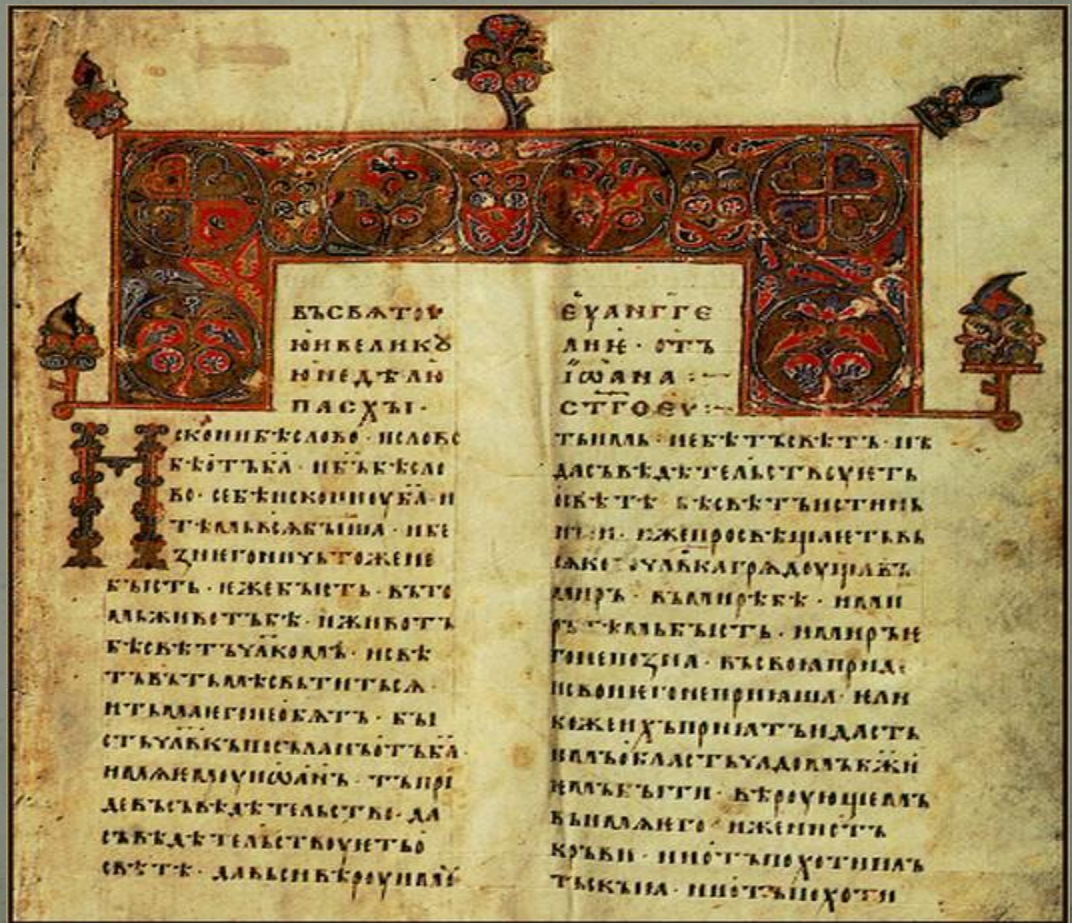 ВЪСВѦТОУ
ЮИВЕЛИКꙊ
ЮНЕДѢЛЮ
ПАСХЫ·
ИСКОНИБѢСЛОВО·ИСЛОВО
БѢОТЪБ҃А·ИБ҃ЪБѢСЛО
ВО·СЕБѢИСКОНИОУБ҃А·И
ТѢМЬВСѦБЫША·ИБЕ
ЗНѤГОНИЧЬТОЖЕНЕ
БЫСТЬ·ѤЖЕБЫСТЬ·ВЪТО
МЬЖИВОТЪБѢ·ИЖИВОТЪ
БѢСВѢТЪЧ҃ЛКОМЪ·ИСВѢ
ТЪВЪТЬМѢСВЬТИТЬСѦ·
ИТЬМАѤГОНЕОБѦТЪ·БЫ
СТЬЧ҃ЛВКЪПОСЪЛАНЪОТЪБ҃А·
ИМѦѤМОУИѠАНЪ·ТЪПРІ
ДЕВЪСЪВѢДѢТЕЛЬСТВО·ДА
СЪВѢДѢТЕЛЬСТВОУѤТЬО
СВѢТѢ·ДАВЬСИВѢРОУИМ
ЕУАНГГЕ
ЛИѤ·ОТЪ
ІѠАНА:~
СТГОЕУ:~
ТЬИМЬ·НЕБѢТЪСВѢТЪ·НЪ
ДАСЪВѢДѢТЕЛЬСТВОУѤТЬ
ОСВѢТѢ·БѢСВѢТЪИСТИНЬ
НЪИ·ИЖЕПРОСВѢЩАѤТЬВЬ
СѦКОГОЧ҃ЛВКАГРѦДОУЩАВЪ
МИРЪ·ВЪМИРѢБѢ·ИМИ
РЪТѢМЬБЫСТЬ·ИМИРЪѤ
ГОНЕПОЗНА·ВЪСВОꙖПРИДЕ
ИСВОИѤГОНЕПРИꙖША·ѤЛИ
КОЖЕИХЪПРИꙖТЪИДАСТЬ
ИМЪОБЛАСТЬЧАДОМЪБ҃ЖИ
ѤМЪБЫТИ·ВѢРОУЮЩЕМЪ
ВЪИМѦѤГО·ИЖЕНИОТЪ
КРЪВИ·НИОТЪПОХОТИПЛЪ
ТЬСКЫꙖ·НИОТЪПОХОТИ